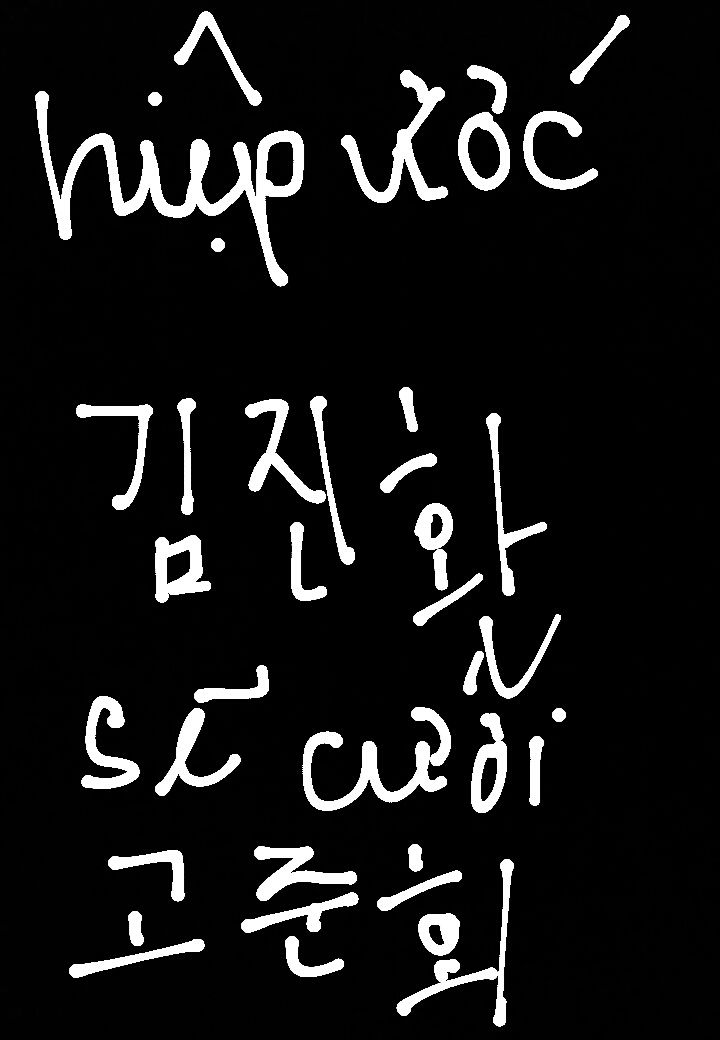 hiệp ước
김진화
sẽ cưỡi
고준회